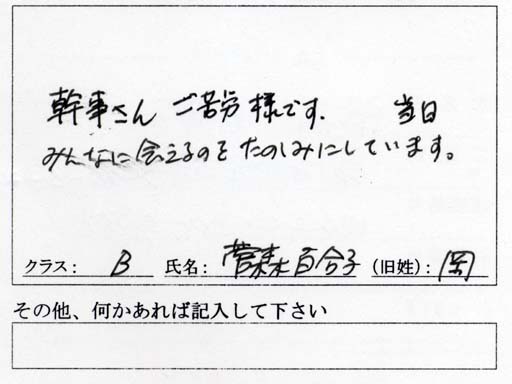 幹事さん ご苦労様です. 当日
みんなに会えるのを たのしみにしています。
クラス: B 氏名: 菅森百合子 (旧姓): 岡
その他、何かあれば記入して下さい